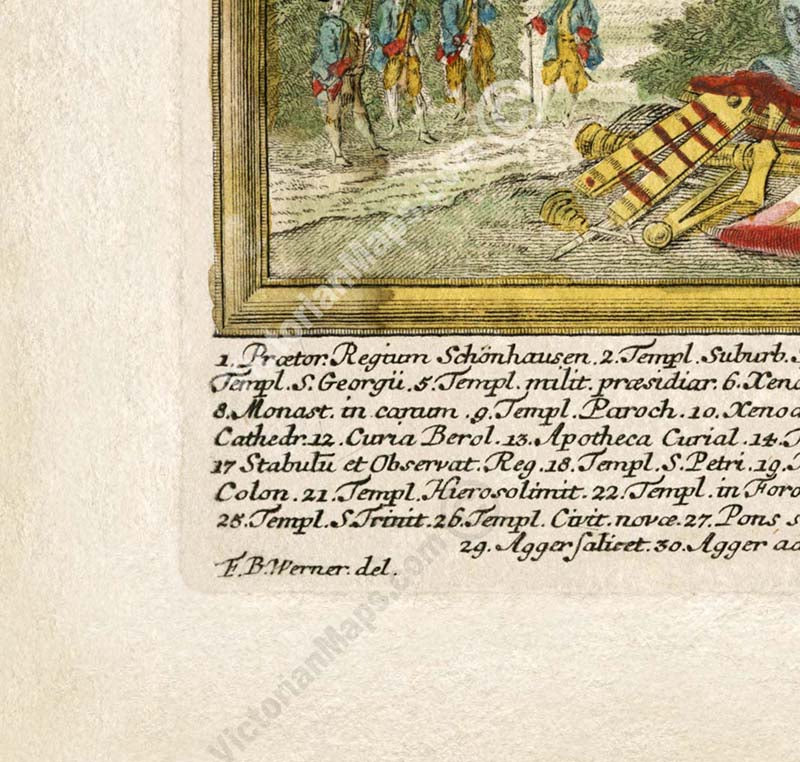 1. Prætor. Regium Schönhausen. 2. Templ. Suburb.
Templ. S. Georgÿ. 5. Templ. milit. præsidiar. 6. Xeno
8. Monast. in carum. 9. Templ. Paroch. 10. Xenod
Cathedr. 12. Curia Berol. 13. Apotheca Curial. 14. T
17 Stabulū et Observat. Reg. 18. Templ. S. Petri. 19. T
Colon. 21. Templ. Hierosolimit. 22. Templ. in Foro
25. Templ. S. Trinit. 26. Templ. Civit. novæ. 27. Pons s
29. Agger salicet. 30. Agger ad
F. B. Werner. del.
©
VictorianMaps.com
VictorianMaps.com